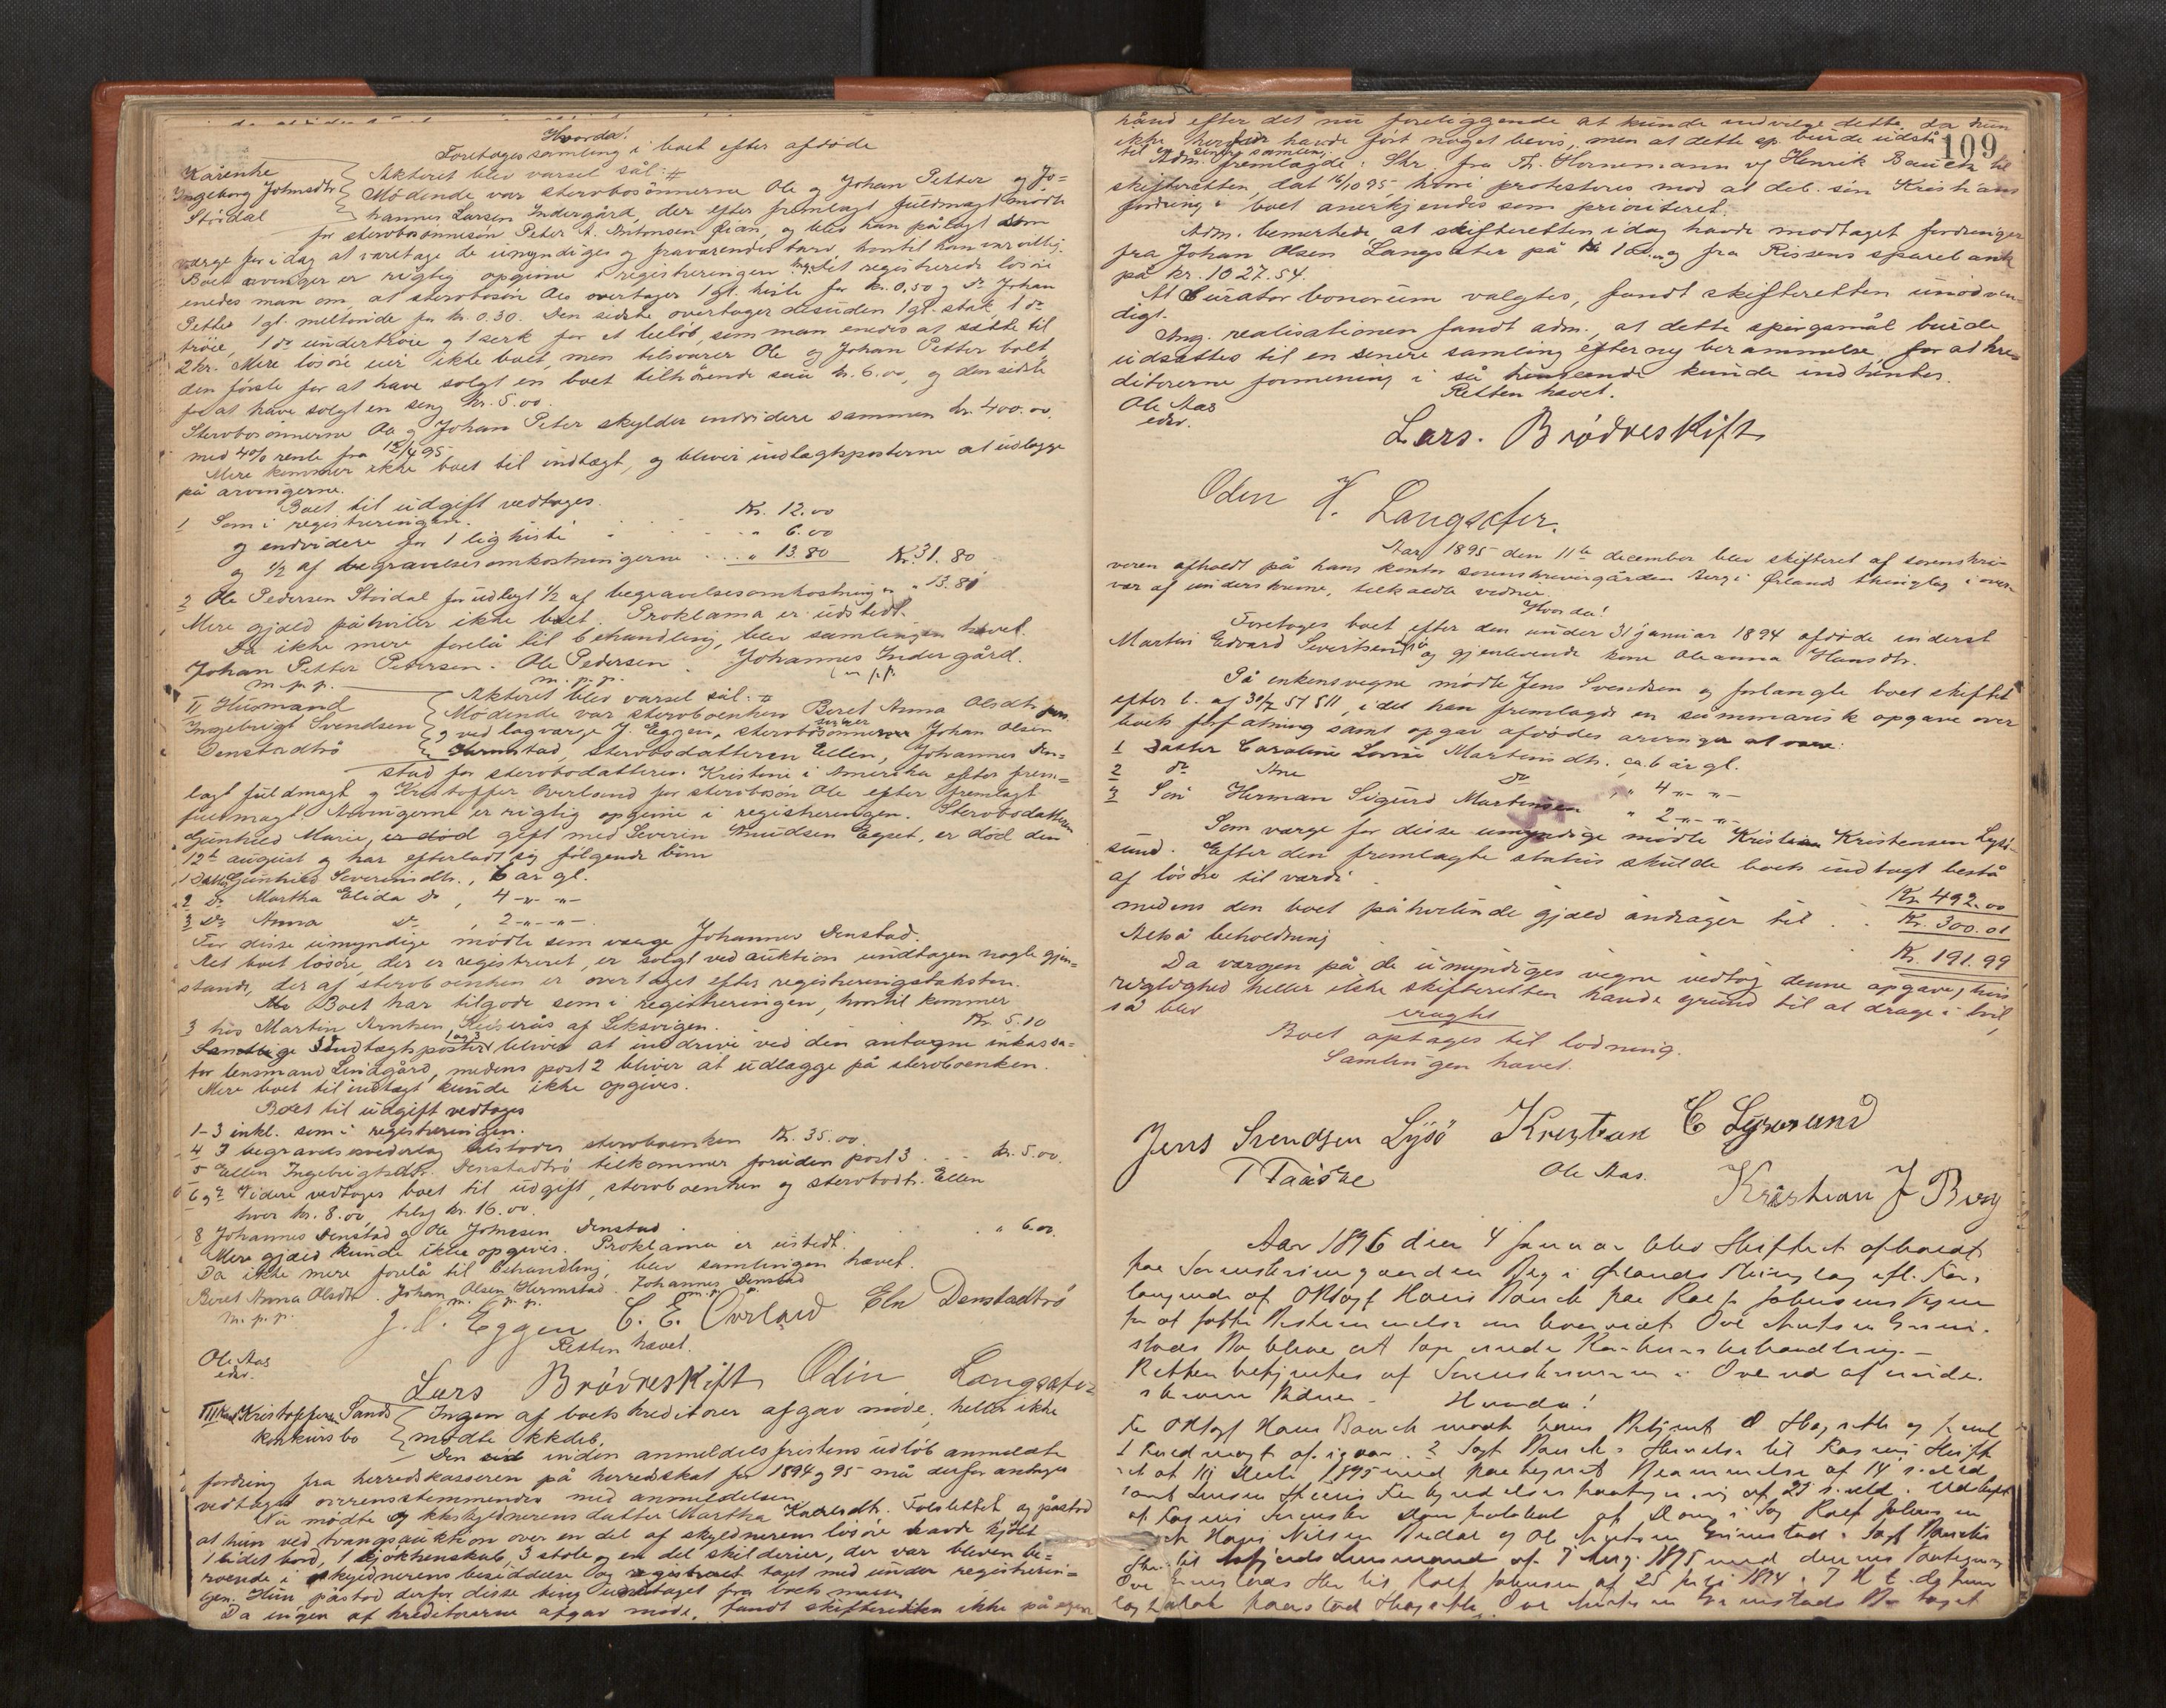 Hvorda!
Foretoges samling i boet efter afdøde
Kårenke
Ingeborg Johnsdtr
Stöidal
Akteret blev varsel sål: #
Mödende var sterbosönnerne Ole og Johan Petter og Jo=
hannes Larsen Indergård, der efter fremlagt fuldmagt mödte
for sterbosönnesön Peter A. Antonsen Fian, og blev han pålagt som
værge for idag at varetage de umyndiges og fraværendes tarv, hvortil han var villig.
Boets arvinger er rigtig opgivne i registreringen. Ang. det registrerede lösöre
enedes man om, at sterbosön Ole overtager 1 gl. kiste for kr. 0.50 og do Johan
Petter 1 gl. meltönde for kr. 0.30. Den sidste overtager desuden 1 gl. stak, 1 do
tröie, 1 do undertröie og 1 serk for et belöb, som man enedes at sætte til
2 kr. Mere lösöre eier ikke boet, men tilsvarer Ole og Johan Petter boet
den förste for at have solgt en boet tilhörende sau kr. 6.00, og den sidste
for at have solgt en seng kr. 5.00.
Sterbosönnerne Ole og Johan Peter skylder endvidere sammen kr. 400.00
med 4% rente fra 12/4 95.
Mere kommer ikke boet til indtægt, og bliver indtægtsposterne at udlægge
på arvingerne.
Boet til udgift vedtoges.
1 Som i registreringen. Kr. 12.00
og endvidere for 1 ligkiste " 6.00
og 1/2 af begravelsesomkostningerne " 13.80 Kr. 31.80
2 Ole Pedersen Stöidal for udlagt 1/2 af begravelsesomkostningen " 13.80
Mere gjæld påhviler ikke boet. Proklama er udstedt.
Da ikke mere forelå til behandling, blev samlingen hævet.
Johan Petter Pedersen. Ole Pedersen. Johannes Indergård.
m. p. p. m. p. p. m p. p.
II Husmand
Ingebrigt Svendsen
Denstadtrö
Akteret blev varsel sål: #
Mödende var sterboenken Beret Anna Olsdtr pers.
og ved lagværge J. Eggen, sterbosvigersönnen Johan Olsen
Hermstad, sterbodatteren Ellen, Johannes Den-
stad for sterbodatteren Kristine i Amerika efter frem=
lagt fuldmagt og Kristoffer Overland for sterbosön Ole efter fremlagt
fuldmagt. Arvingerne er rigtig opgivne i registreringen. Sterbodatteren
Gunhild Marie, er död gift med Severin Knudsen Egset, er död den
12te august og har efterladt sig fölgende börn
1 Datter Gunhild Severinsdtr., 6 år gl.
2 Do Martha Elida Do, 4 -"- -"-
3 Do Anna Do, 2 -"- -"-
For disse umyndige mödte som værge Johannes Denstad.
Alt boets lösöre, der er registreret, er solgt ved auktion undtagen nogle gjen=
stande, der af sterboenken er overtaget efter registreringstaksten.
Boet har tilgode som i registreringen, hvortil kommer
3 hos Martin Arntsen Keiserås af Leksvigen. Kr. 5.10
Samtlige Indtægtsposter 1 og 3 bliver at inddrive ved den antagne inkassa=
tor lensmand Lindgård, medens post 2 bliver at udlægge på sterboenken.
Mere boet til indtægt kunde ikke opgives.
Boet til udgift vedtoges
1-3 inkl. som i registreringen.
4 I begravelsesvederlag tilståes sterboenken Kr. 35.00.
5 Ellen Ingebrigtsdtr. Denstadtrö tilkommer foruden post 3 Kr. 5.00.
6 og 7 Videre vedtoges boet til udgift, sterboenken og sterbodtr. Ellen
hver kr. 8.00, tils. kr. 16.00.
8 Johannes Denstad og Ole Johnsen Denstad " 6.00.
Mere gjæld kunde ikke opgives. Proklama er ustedt.
Da ikke mere forelå til behandling, blev samlingen hævet.
Beret Anna Olsdtr. Johan Olsen Hermstad. Johannes Denstad
m. p. p. m. p. p. m. p. p.
J. Eggen C. E. Overland Eln Denstadtrö
Retten hævet.
Ole Aas
edsv.
Lars Brödreskift Odin Langsæter
III Karl Kristoffersen Sands
konkursbo
Ingen af boets kreditorer afgav möde, heller ikke
mödte kkdeb.
Den inden anmeldelsfristens udlöb anmeldte
fordring fra herredskasseren på herredskat for 1894 og 95 må derfor antages
vedtaget overensstemmende med anmeldelsen
Nu mödte kkskyldnerens datter Martha Karlsdtr. og påstod
at hun ved tvangsauktion over en del af skyldnerens lösöre havde kjöbt
1 lidet bord, 1 kjökkenskab, 3 stole og en del skilderier, der var bleven be=
roende i skyldnerens besiddelse og registreret taget med under registrerin-
gen. Hun påstod derfor disse ting undtaget fra boets masse.
Da ingen af kreditorerne afgav möde, fandt skifteretten ikke på egen
109
hånd efter det nu foreliggende at kunde indvilge dette, da hun
ikke herfor havde fört noget bevis, men at dette sp. burde udstå
til en senere samling.
Adm. fremlagde: Skr. fra Th. Hornemann og Henrik Bauck til
skifteretten, dat 16/10 95, hvori protesteres mod at deb. sön Kristians
fordring i boet anerkjendes som prioriteret.
Adm. bemerkede, at skifteretten idag havde modtaget fordringer
fra Johan Olsen Langsæter på kr og fra Rissens sparebank
på kr. 1027.54.
At Curator bonorum valgtes, fandt skifteretten unödven-
digt.
Ang. realisationen fandt adm., at dette spörgsmål burde
udsættes til en senere samling efter ny berammelse, for at kre-
ditorerne formening i så henseende kunde indhentes.
Retten hævet.
Ole Aas
edsv.
Lars. Brödreskift
Oden H. Langsæter.
Aar 1895 den 11te december blev skifteret af sorenskri-
veren afholdt på hans kontor sorenskrivergården Berg i Ørlands thinglag i over-
vær af underskrevne, tilkaldte vidner.
Hvorda!
Foretoges boet efter den under 31 januar 1894 afdöde inderst
Martin Edvard Sivertsen og gjenlevende kone Oleanna Hansdtr.
På enkens vegne mödte Jens Svendsen og forlangte boet skiftet
efter l. af 31/7 51 § 11, idet han fremlagde en summarisk opgave over
boets forfatning samt opgav afdödes arvinger at være:
1 Datter Caroline Lovise Martinsdtr. ca. 6 år gl.
2 do Ane do " 4 -"- -"-
3 Sön Herman Sigurd Martinsen " 2 -"- -"-
Som værge for disse umyndige mödte Kristian Kristensen Lysö-
sund. Efter den fremlagte status skulde boets indtægt bestå
af lösöre til værdi Kr. 492.00
medens den boet påhvilende gjæld andrager til Kr. 300.01
Altså beholdning Kr. 191.99
Da værgen på de umyndiges vegne vedtog denne opgave, hvis
rigtighed heller ikke skifteretten havde grund til at drage i tvil,
så blev
eragtet
Boet optages til lodning.
Samlingen hævet.
Jens Svendsen Lysö Kristian C Lysøsund
Ole Aas.
Kristian J Berg
Aar 1896 den 4 Januar blev Skifteret afholdt
paa Sorenskrivergaarden Berg i Ørlands Thinglag efter For-
langende af ORSagf Hans Bauck paa Rolf Johnsens Vegne
for at fatte Bestemmelse om hvorvidt Ove
Bo bliver at tage under Konkursbehandling. —
Retten betjentes af Sorenskriveren i Overvær af under-
skrevne Vidner — Hvorda!
For OKSagf Hans Bauck mødte hans Betjent O Hogseth og freml
1 Fuldmagt af igaar. 2 Sagf Baucks
1895 med paategnet Berammelse af 14 s. Md
7 Aug. 1895 med dennes Paategning